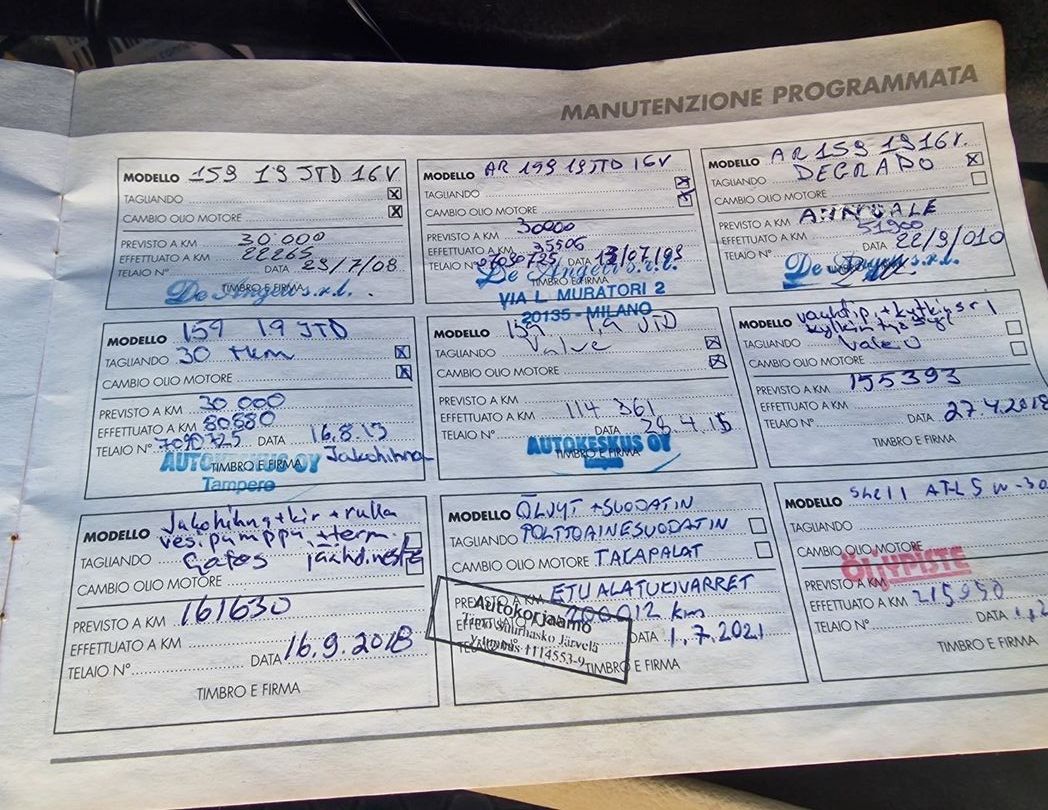 MANUTENZIONE PROGRAMMATA
MODELLO 159 19 JTD 16V
TAGLIANDO
CAMBIO OLIO MOTORE
PREVISTO A KM 30 000
EFFETTUATO A KM 22265
TELAIO N° DATA 23/7/08
TIMBRO E FIRMA
De Angeli s.r.l.
MODELLO AR 159 19 JTD 16V
TAGLIANDO
CAMBIO OLIO MOTORE
PREVISTO A KM 30000
EFFETTUATO A KM 35506
TELAIO N° 07090725 DATA 13/07/09
De Angeli s.r.l.
TIMBRO E FIRMA
VIA L. MURATORI 2
20135 - MILANO
MODELLO AR 159 1916V.
DEGRADO
TAGLIANDO
CAMBIO OLIO MOTORE
PREVISTO A KM ANNUALE
EFFETTUATO A KM 51900
TELAIO N° DATA 22/9/010
De Angeli s.r.l.
MODELLO 159 19 JTD
TAGLIANDO 30 tkm
CAMBIO OLIO MOTORE
PREVISTO A KM 30 000
EFFETTUATO A KM 80880
TELAIO N° 7090725 DATA 16.8.13
AUTOKESKUS OY Jakohihna
TIMBRO E FIRMA
Tampere
MODELLO 159 1,9 JTD
TAGLIANDO
CAMBIO OLIO MOTORE
PREVISTO A KM
EFFETTUATO A KM 114 361
TELAIO N° DATA 26.4.15
AUTOKESKUS OY
TIMBRO E FIRMA
MODELLO
TAGLIANDO Valeo
CAMBIO OLIO MOTORE
PREVISTO A KM 155393
EFFETTUATO A KM
TELAIO N° DATA 27.4.2018
TIMBRO E FIRMA
Jakohihna+kir+rulla
MODELLO vesipumppu,+term.
TAGLIANDO Gates jäähd.neste
CAMBIO OLIO MOTORE
PREVISTO A KM 161630
EFFETTUATO A KM
TELAIO N° DATA 16.9.2018
TIMBRO E FIRMA
MODELLO ÖLJYT +SUODATIN
TAGLIANDO POLTTOAINESUODATIN
CAMBIO OLIO MOTORE TAKAPALAT
ETUALATUKIVARRET
PREVISTO A KM 200012 km
Autokorjaamo
EFFETTUATO DATA 1.7.2021
Järvelä
1114553-9
TIMBRO E FIRMA
MODELLO Shell ATL 5W-30
TAGLIANDO
CAMBIO OLIO MOTORE
ÖLJYPISTE
PREVISTO A KM
EFFETTUATO A KM 215950
TELAIO N° DATA
TIMBRO E FIRMA